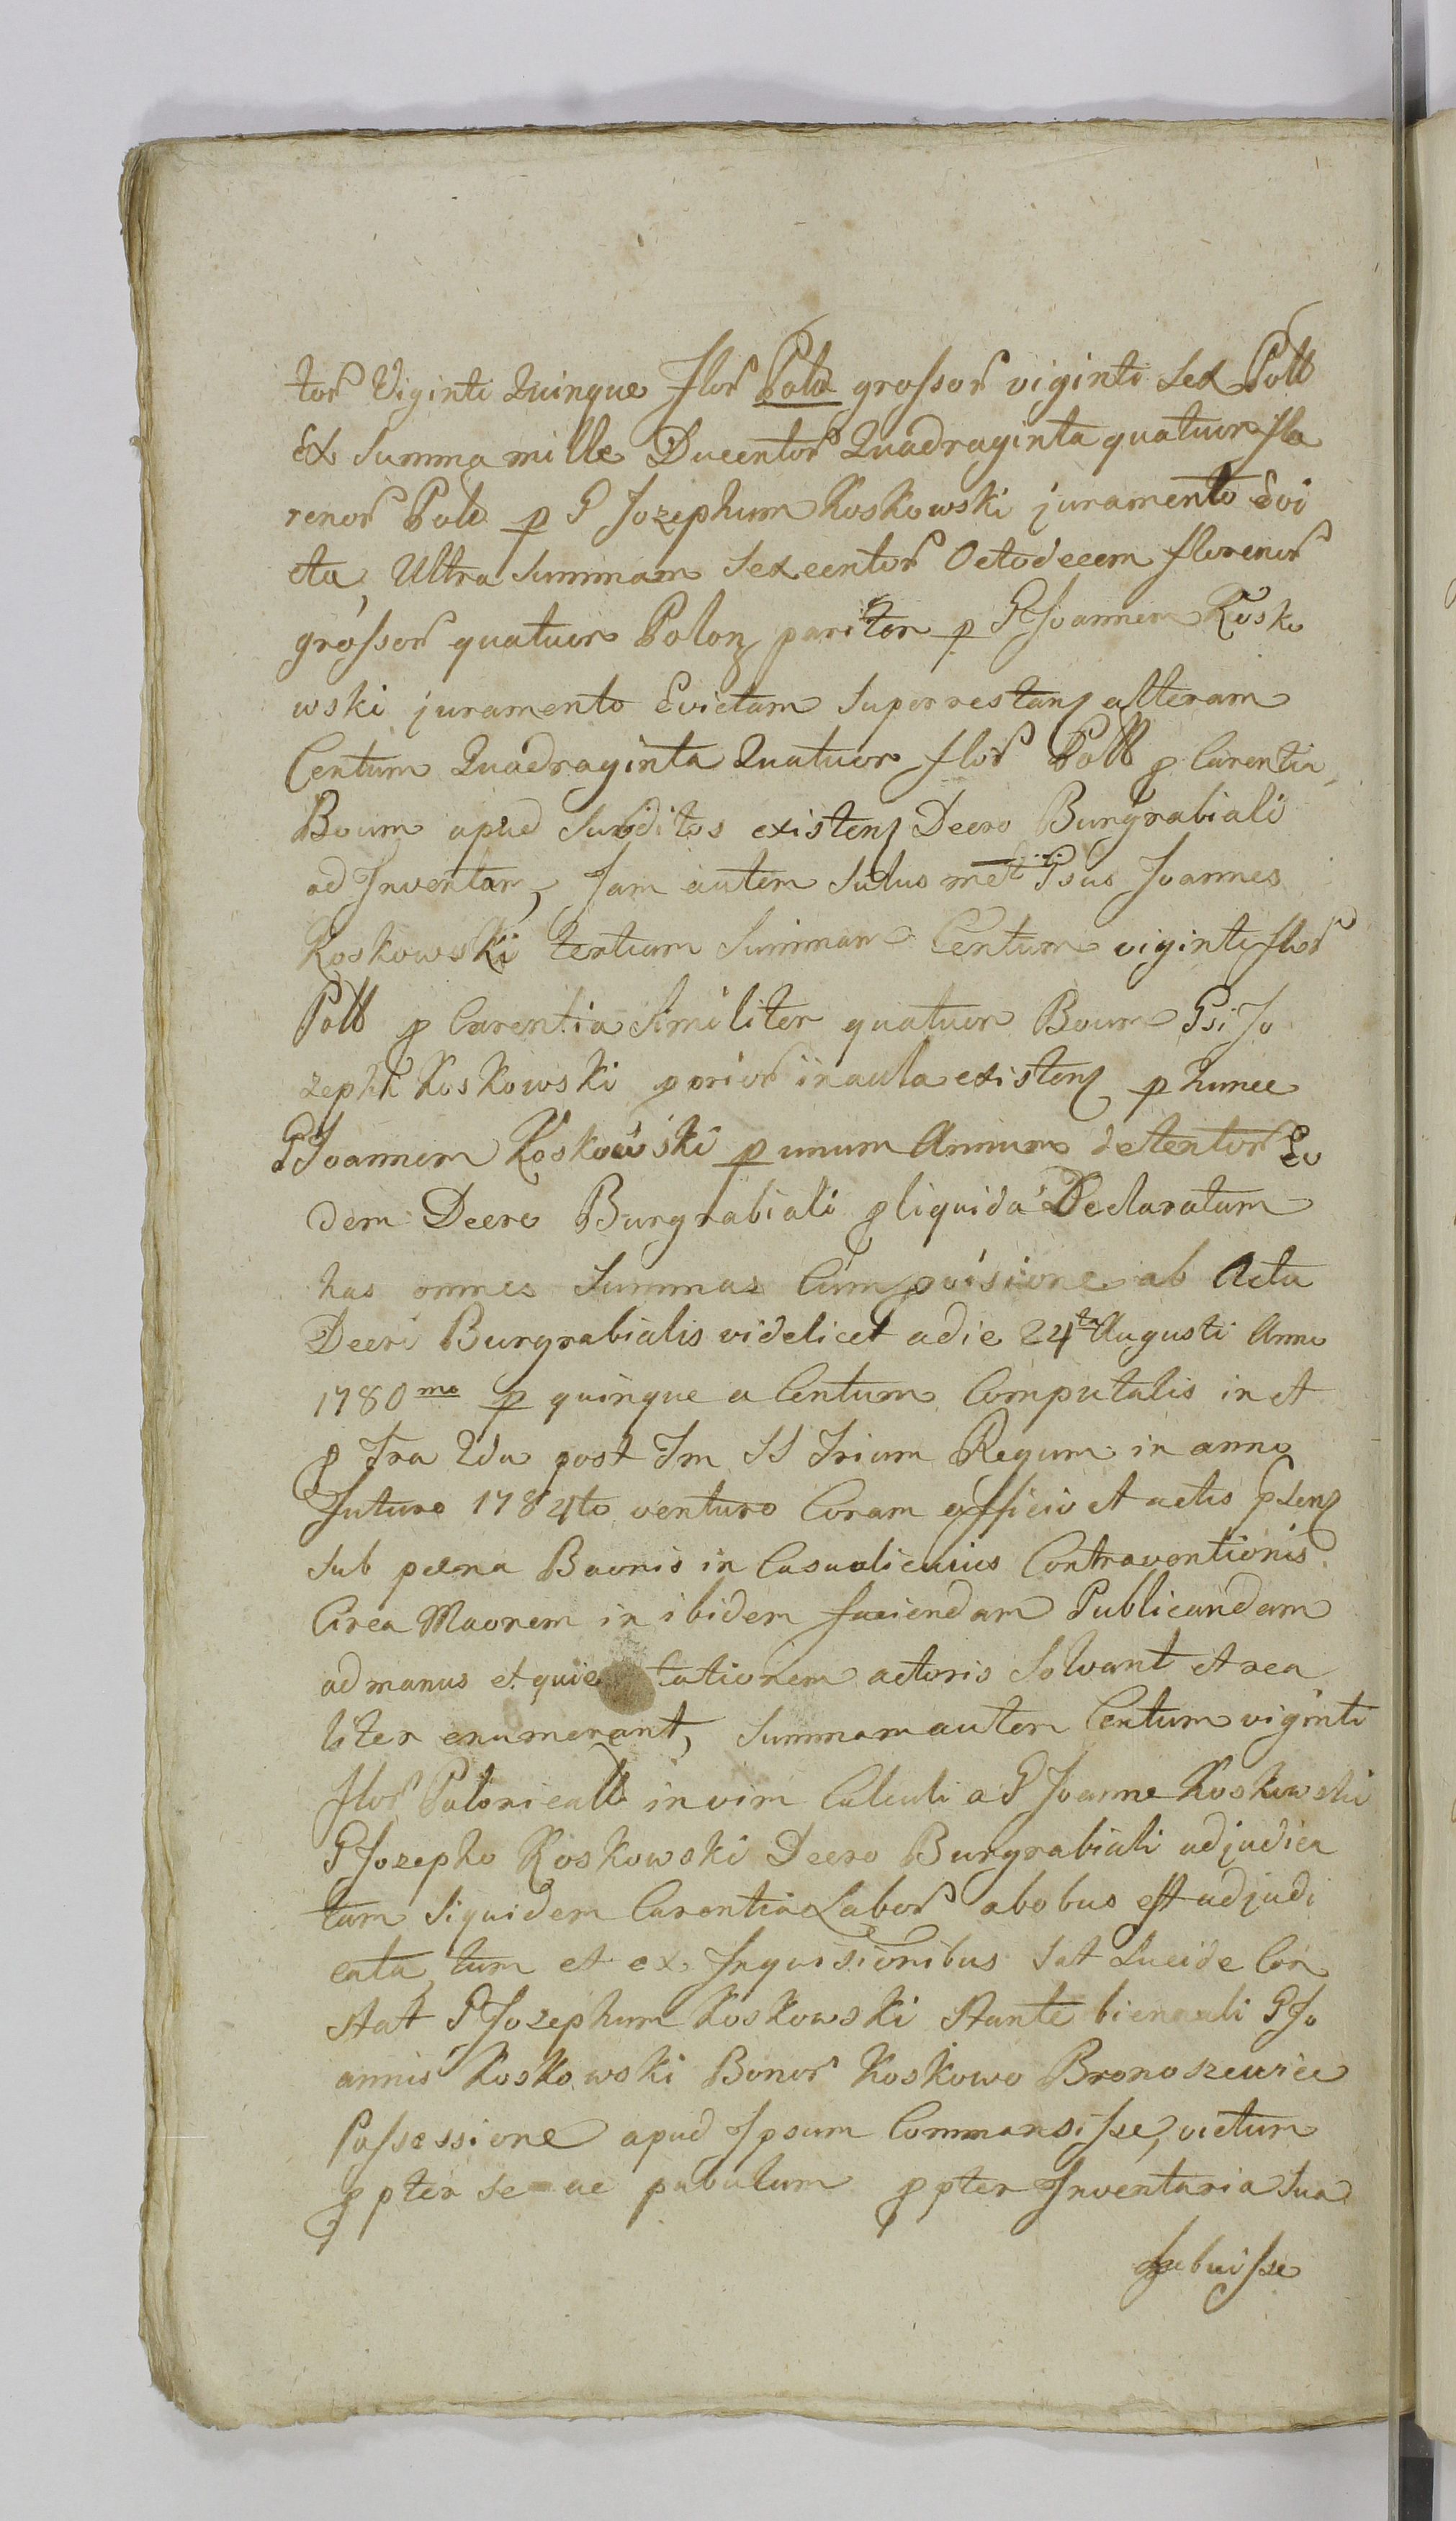 tor Viginti Quinque flor Polo grossor viginti Sex Poll
Ex Summa mille Ducentor Quadraginta quatuor flo
renor Polo p G Jozephum Koskowski juramento Evi
cta, Ultra Summam Sexcentor Octodecem florenor
grossor quatuor Polonz pariter p G Joannem Kosko
wski juramento Evictam Superrestanz alteram
Centum Quadraginta Quatuor flor Poll p Carentia
Boum apud Subditos existenz Decro Burgrabiali
ad Inventar, Jam autem Solus met Gsus Joannes
Koskowski tertiam Summam Centum viginti flor
Poll p Carentia Similiter quatuor Boum Gsi Jo
zephi Koskowski prior in aula existenz p hunce
G Joannem Koskowski p unum Annum detentor Eo
dem Decro Burgrabiali p liquida Declaratam
has omnes Summas Cum pvisione ab Acta
Decri Burgrabialis videlicet a die 24ta Augusti Anno
1780mo p quinque a Centum Computalis in et
p Fra 2da post Fm SS Trium Regum in anno
futuro 1784to venturo Coram officio et actis psenz
Sub paena Baonis in Casu alicuius Contraventionis
Circa Maonem in ibidem faciendam Publicandam
ad manus et quie tationem actoris Solvant et rea
liter enumerant, Summam autem Centum viginti
flor Polonicall in vim Calculi a G Joanne Koskowski
G Jozepho Koskowski Decro Burgrabiali adjudica
tam Siquidem Carentia Labor abobus est adjudi
cata, tum et ex Inquisionibus Sat Lucide Con
stat G Jozephum Koskowski Stante biennali G Jo
annis Koskowski Bonor Koskowo Bronoszewice
Possessione apud Ipsum Commansisse, victum
ppter se ac pabulum ppter Inventaria Sua
habuisse